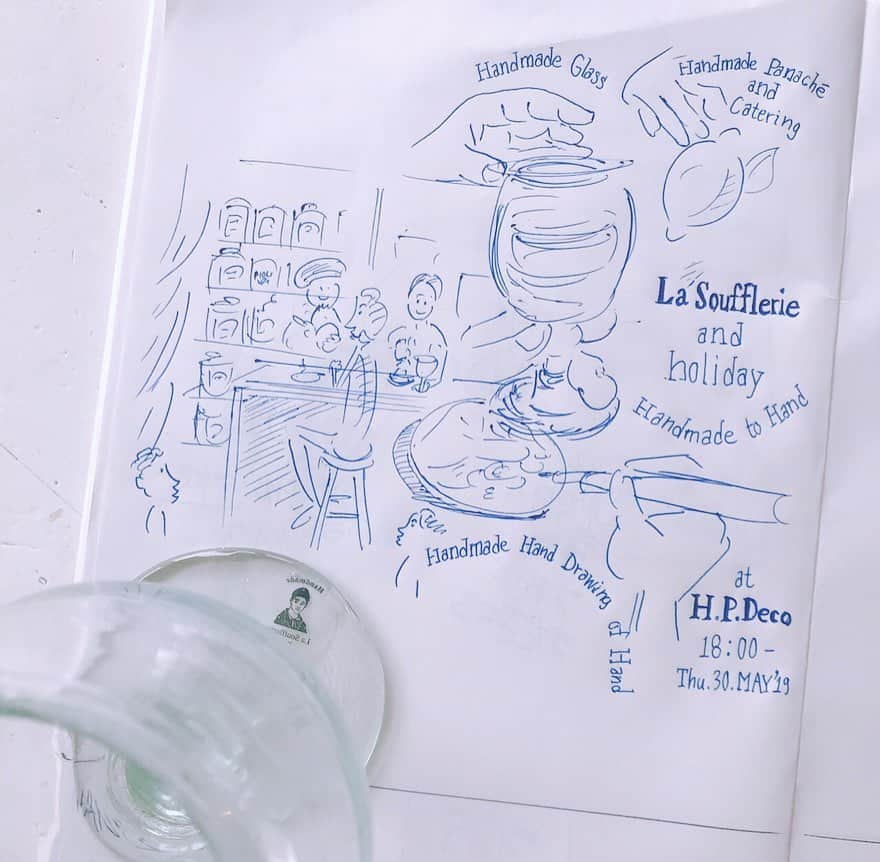 Handmade Glass
Handmade Panaché
and
Catering
La Soufflerie
and
holiday
Handmade to Hand
Handmade Hand Drawing of Hand
at
H.P.Deco
18:00 –
Thu.30.MAY'19
Handmade
La Soufflerie